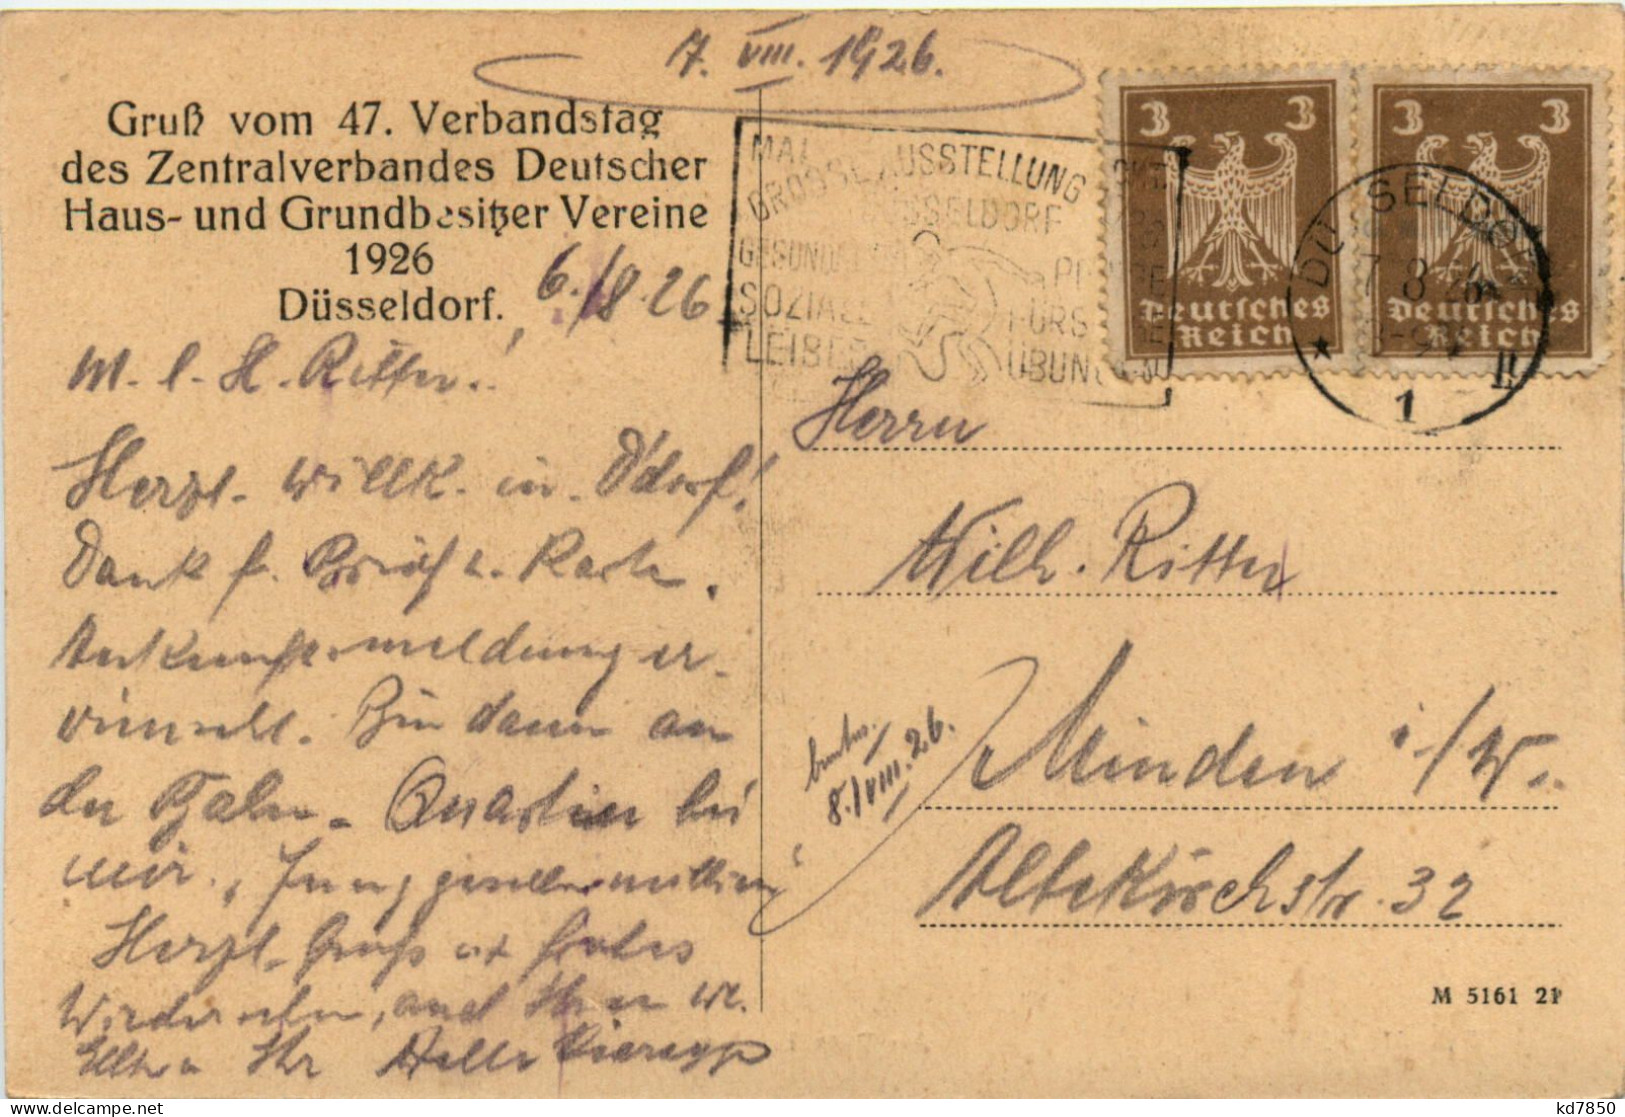 7. VIII. 1926.
Gruß vom 47. Verbandstag
des Zentralverbandes Deutscher
Haus- und Grundbesitzer Vereine
1926
Düsseldorf.
6./8.26
M. l. H. Ritter!
Herzl. Willk. in D'dorf!
Dank f. Brief u. Karte.
Ankunftsmeldung er-
wünscht. Bin dann an
der Bahn. Quartier bei
mir. „Junggesellen
Herzl. Gruß u. frohes
Wiedersehn, auch Ihren w.
Eltern Ihr
MAI
GROSSE AUSSTELLUNG
DÜSSELDORF
GESUNDHEITSPFLEGE
SOZIALE FÜRSORGE
LEIBESÜBUNGEN
3 3
Deutsches
Reich
3 3
Deutsches
Reich
DÜSSELDORF
7.8.26
1
Herrn
Wilh. Ritter
Minden i/W.
8./VIII.26.
Albekirchstr. 32
M 5161 21
kd7850